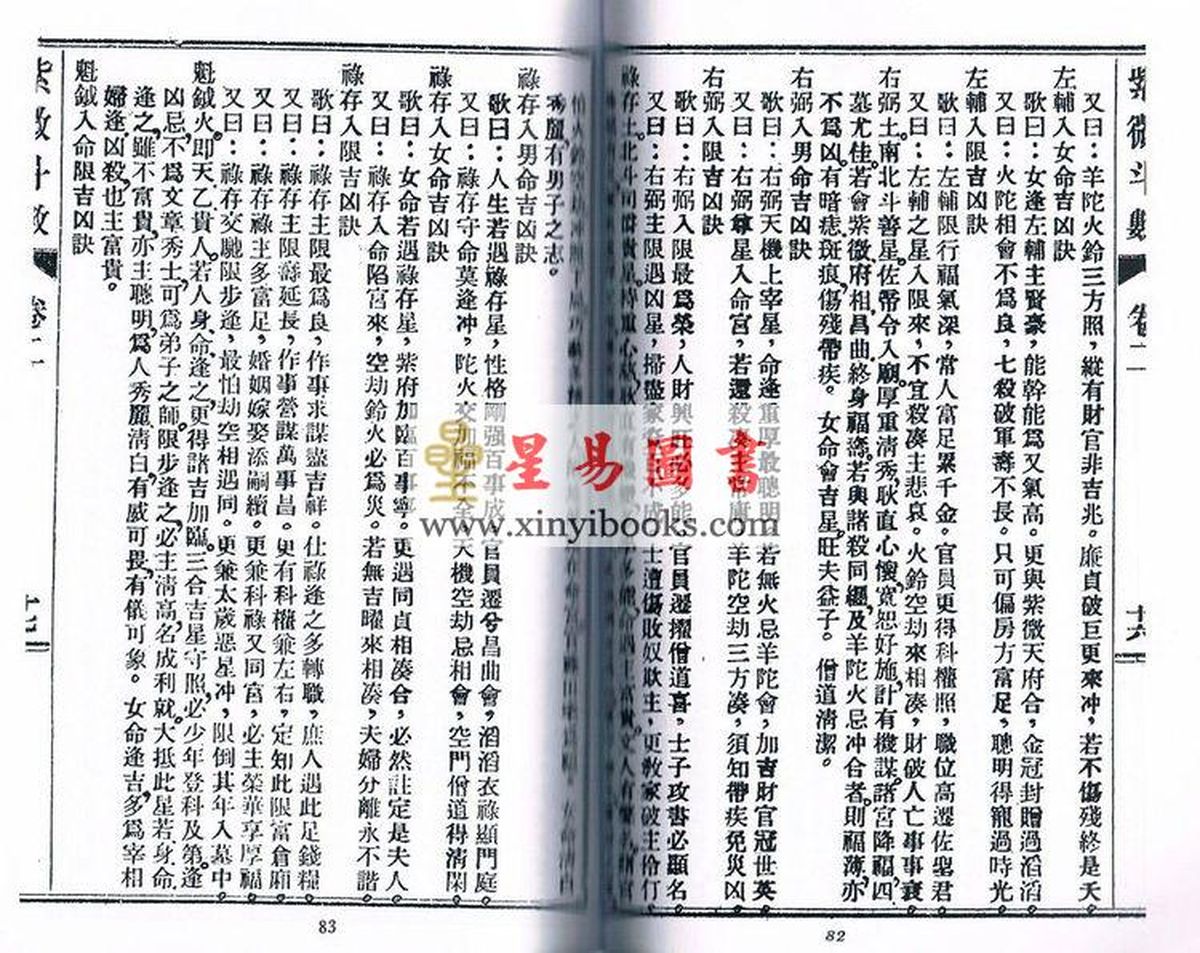 紫微斗數
卷二
十六
又曰：羊陀火鈴三方照，縱有財官非吉兆。廉貞破巨更來冲，若不傷殘終是夭。
左輔入女命吉凶訣
歌曰：女逢左輔主賢豪，能幹能爲又氣高。更與紫微天府合，金冠封贈過滔滔
又曰：火陀相會不爲良，七殺破軍壽不長。只可偏房方富足，聰明得寵過時光
左輔入限吉凶訣
歌曰：左輔限行福氣深，常人富足累千金。官員更得科權照，職位高遷佐聖君
又曰：左輔之星入限來，不宜殺凑主悲哀。火鈴空劫來相凑，財破人亡事事衰
右弼土。南北斗善星。佐帝令入廟。厚重淸秀，耿直心懷，寬恕好施，計有機謀。諸宮降福，四
墓尤佳。若會紫微府相昌曲，終身福壽。若與諸殺同纏，及羊陀火忌冲合者，則福薄，亦
不爲凶。有暗痣斑痕，傷殘帶疾。 女命會吉星，旺夫益子。 僧道淸潔。
右弼入男命吉凶訣
歌曰：右弼天機上宰星，命逢重厚最聰明，若無火忌羊陀會，加吉財官冠世英
又曰：右弼尊星入命宮，若還殺凑主常庸。羊陀空劫三方凑，須知帶疾免災凶
右弼入限吉凶訣
歌曰：右弼入限最爲榮，人財興旺必多能，官員遷擢僧道喜，士子攻書必顯名
又曰：右弼主限遇凶星，掃盡家資百不成，士遭傷敗奴欺主，更教家破主伶仃
祿存土。北斗司爵貴星。
82
秀麗，有男子之志。
祿存入男命吉凶訣
歌曰：人生若遇祿存星，性格剛强百事成，官員遷兮昌曲會，滔滔衣祿顯門庭
又曰：祿存守命莫逢冲，陀火交加福不全，天機空劫忌相會，空門僧道得淸閑
祿存入女命吉凶訣
歌曰：女命若遇祿存星，紫府加臨百事寧。更遇同貞相凑合，必然註定是夫人
又曰：祿存入命陷宮來，空劫鈴火必爲災。若無吉曜來相凑，夫婦分離永不諧
祿存入限吉凶訣
歌曰：祿存主限最爲良，作事求謀盡吉祥。仕祿逢之多轉職，庶人遇此足錢糧
又曰：祿存主限壽延長，作事營謀萬事昌。更有科權兼左右，定知此限富倉廂
又曰：祿存祿主多富足，婚姻嫁娶添嗣續。更兼科祿又同宮，必主榮華享厚福
又曰：祿存交馳限步逢，最怕劫空相遇同。更兼太歲惡星冲，限倒其年入墓中
魁鉞火。即天乙貴人。若人身命逢之，更得諸吉加臨，三合吉星守照，必少年登科及第。逢
凶忌，不爲文章秀士，可爲弟子之師。限步逢之，必主淸高，名成利就。大抵此星若身命
逢之，雖不富貴，亦主聰明，爲人秀麗淸白，有威可畏，有儀可象。 女命逢吉，多爲宰相
婦逢凶殺也主富貴。
魁鉞入命限吉凶訣
紫微斗數
卷二
十七
83
星易圖書
www.xinyibooks.com